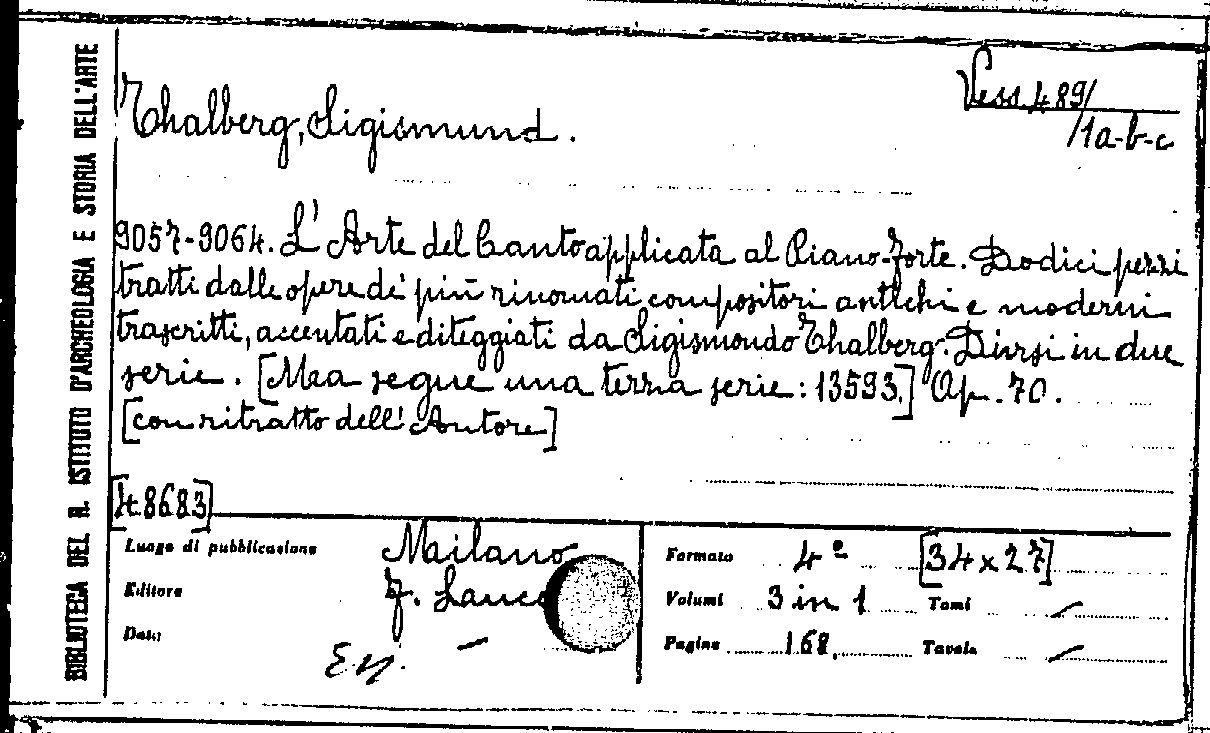 BIBLIOTECA DEL R. ISTITUTO D'ARCHEOLOGIA E STORIA DELL'ARTE
Thalberg, Sigismund.
Vess. 489/
/1a-b-c
9057-9064. L'Arte del Canto applicata al Piano-forte. Dodici pezzi
tratti dalle opere di più rinomati compositori antichi e moderni
trascritti, accentati e diteggiati da Sigismondo Thalberg. Divisi in due
serie. [Ma segue una terza serie: 13593.] Op. 70.
[con ritratto dell'Autore]
[48683]
Luogo di pubblicazione Milano
Editore F.
Data —
Formato 4º [34 x 27]
Volumi 3 in 1 Tomi /
Pagine 168. Tavole /